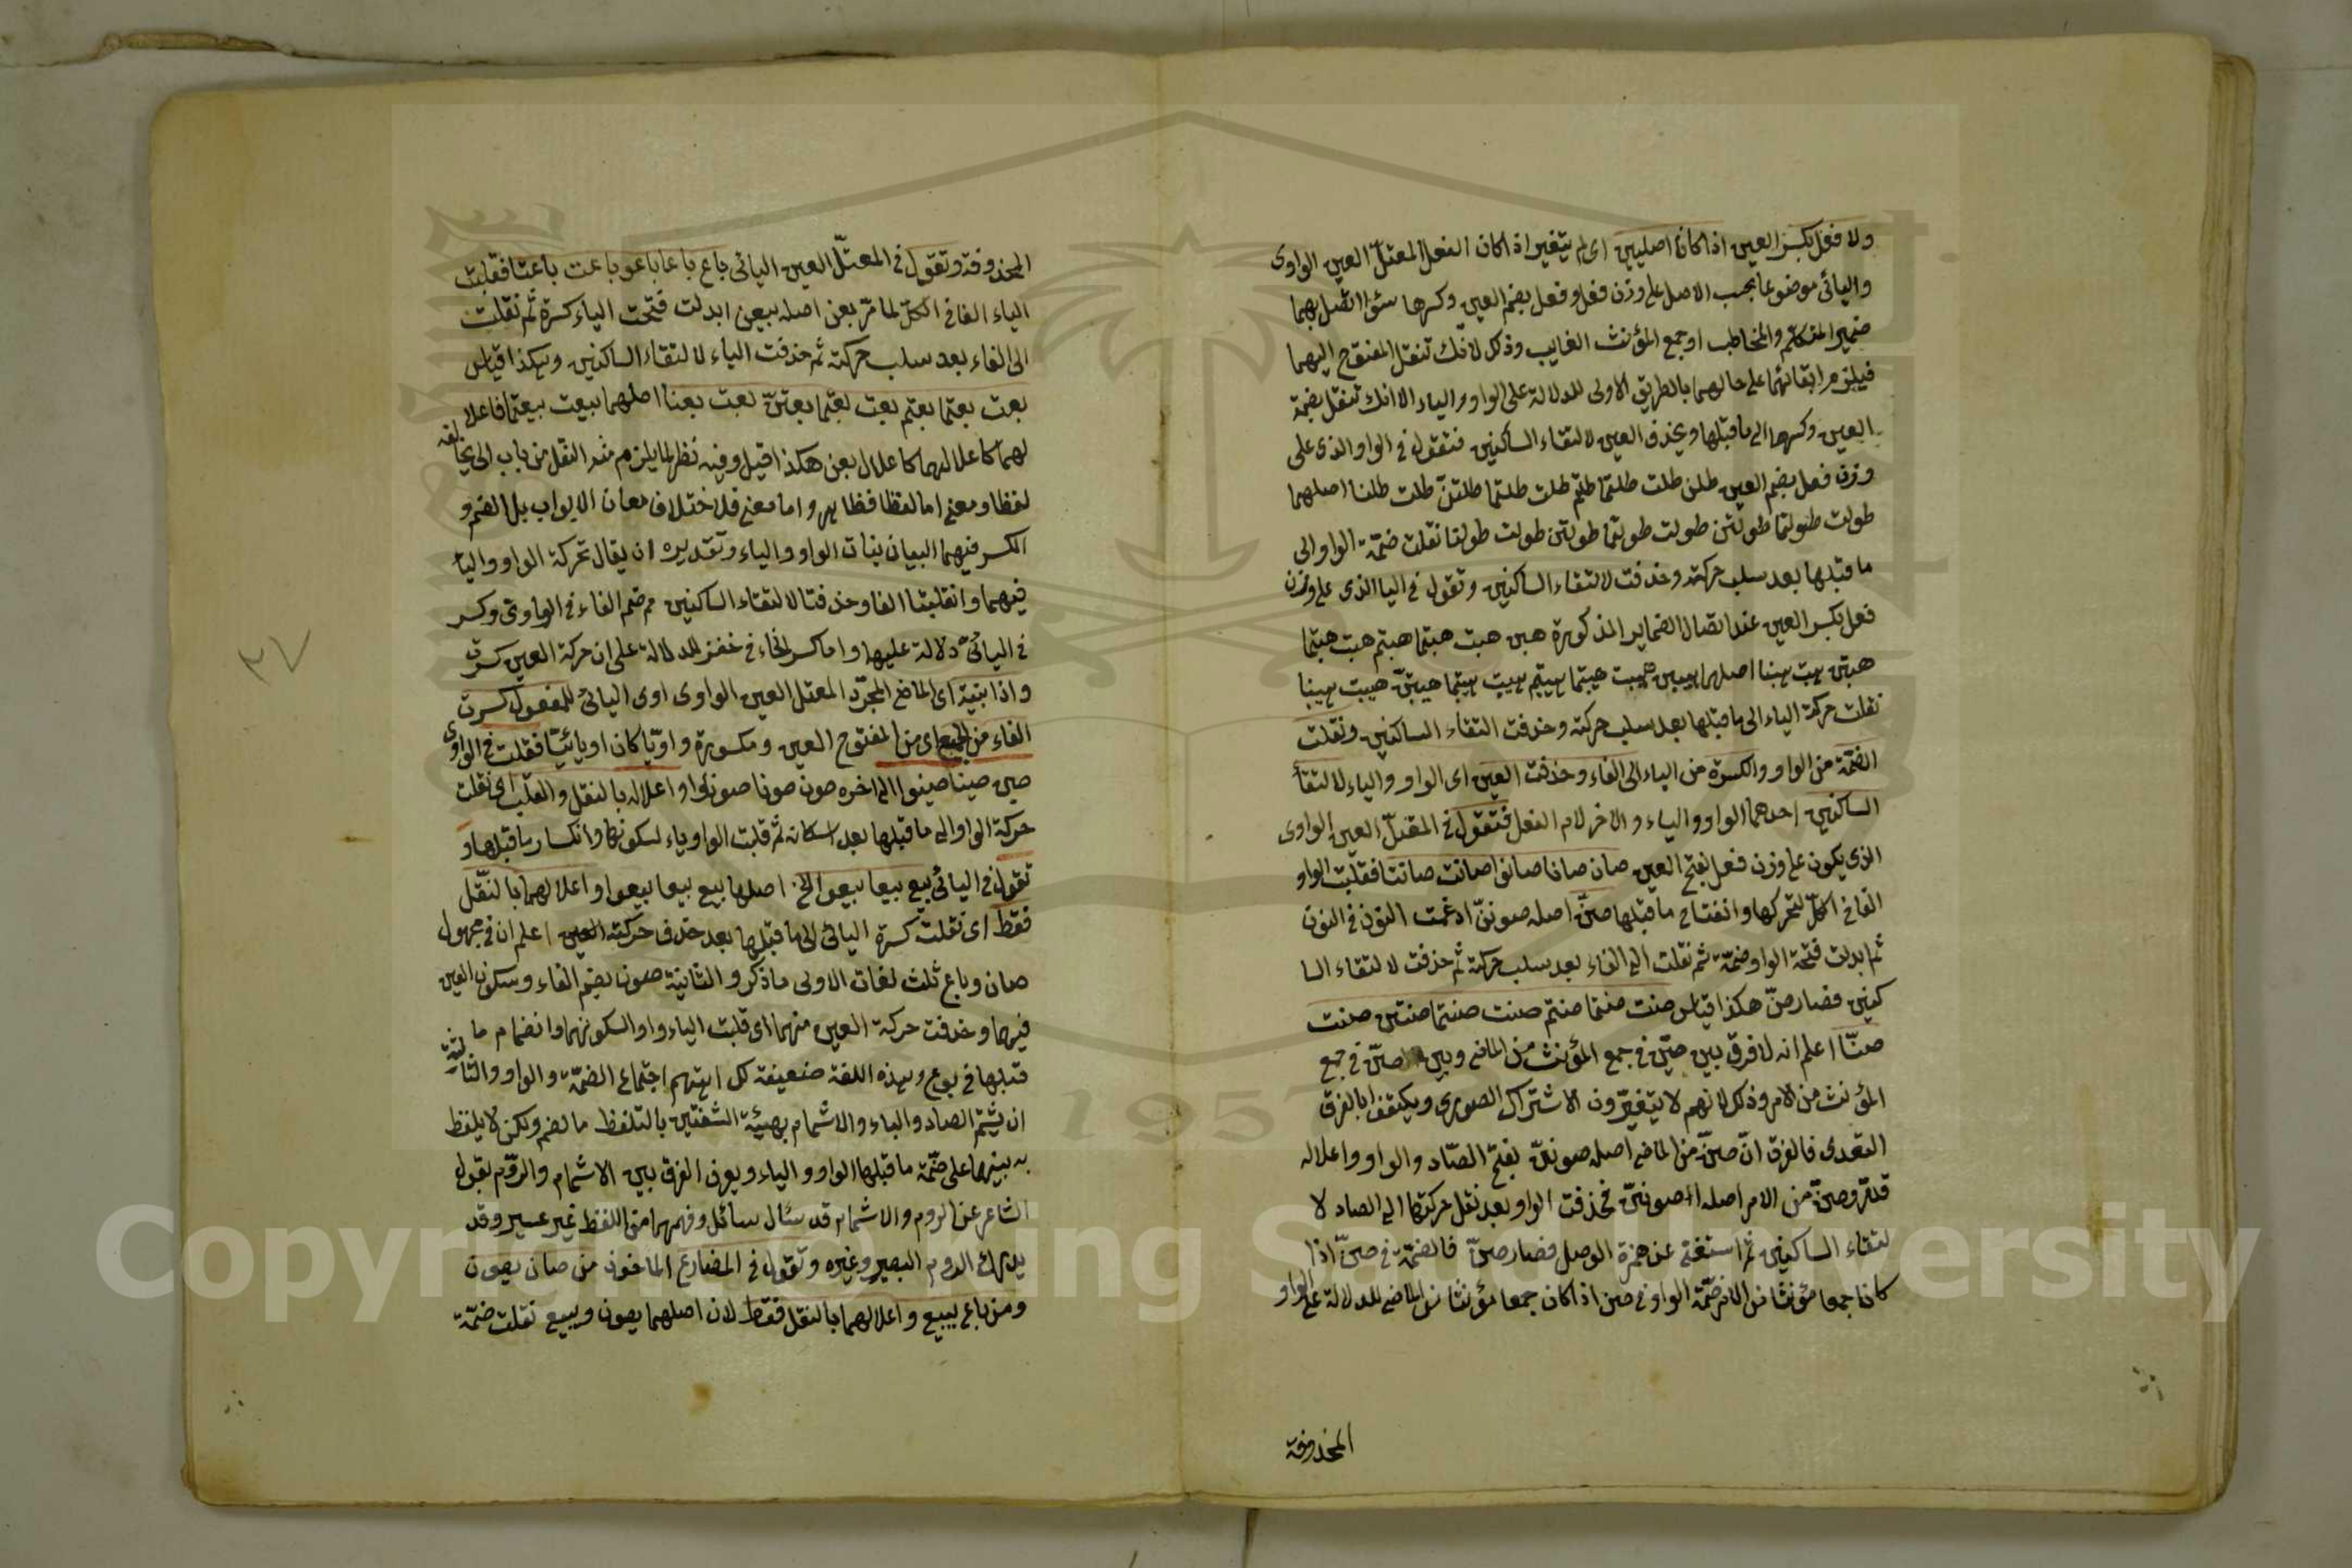 ولا فعل بكسر العين اذا كانا اصليين اى لم يتغير اذا كان الفعل المعتل العين الواوى
واليائى موضوعا بحسب الاصل على وزن فعل وفعل بضم العين وكسرها سوا اتصل بهما
ضمير المتكلم والمخاطب او جمع المؤنث الغايب وذلك لانك تنقل المفتوح اليهما
فيلزم ابقائهما على حالهما بالطريق الاولى للدلالة على الواو والياء الا انك تنقل بضمة
العين وكسرها الى ما قبلها ويحذف العين لالتقاء الساكنين فتقول فى الواو الذى على
وزن فعل بضم العين طلن طلت طلتما طلتم طلت طلتما طلتن طلت طلنا اصلهما
طولت طولتما طولتن طولت طولتما طولتن طولت طولنا نقلت ضمة الواو الى
ما قبلها بعد سلب حركته وحذفت لالتقاء الساكنين وتقول فى اليا الذى على وزن
فعل بكسر العين عند اتصال الضماير المذكورة هبن هبت هبتما هبتم هبت هبتما
هبتن هبت هبنا اصلها هيبن هيبت هيبتما هيبتم هيبت هيبتما هيبتن هيبت هيبنا
نقلت حركة الياء الى ما قبلها بعد سلب حركته وحذفت التقاء الساكنين ونقلت
الضمة من الواو والكسرة من الياء الى الفاء وحذفت العين اى الواو والياء لالتقأ
الساكنين احدهما الواو والياء والاخر لام الفعل فتقول فى المعتل العين الواوى
الذى يكون على وزن فعل بفتح العين صان صانا صانوا صانت صانتا فقلبت الواو
الفا فى الكل لتحركها وانفتاح ما قبلها صن اصله صونن ادغمت النون فى النون
ثم ابدلت فتحة الواو ضمة ثم نقلت الى الفاء بعد سلب حركته ثم حذفت لالتقاء السا
كنين فصار صن هكذا قياس صنت صنتما صنتم صنت صنتما صنتن صنت
صنا اعلم انه لا فرق بين صن فى جمع المؤنث من الماضى وبين صن فى جمع
المؤنث من الامر وذلك لانهم لا يتغيرون الاشتراك الصورى ويكتفوا بالفرق
التقدى فالفرق ان صن من الماضى اصله صونن بفتح الصاد والواو واعلاله
قد مر وصن من الامر اصله اصونن فحذفت الواو بعد نقل حركتها الى الصاد لا
لتقاء الساكنين ثم استغنى عن همزة الوصل فصار صن فالضمة فى صن اذا
كانا جمعا مؤنثا من الامر ضمة الواو فى صن اذا كان جمعا مؤنثا من الماضى للدلالة على الواو
المحذوفة
المحذوفة وتقول فى المعتل العين اليائى باع باعا باعو باعت باعتا فقلبت
الياء الفا فى الكل لما مر بعن اصله بيعن ابدلت فتحت الياء كسرة ثم نقلت
الى الفاء بعد سلب حركته ثم حذفت الياء لالتقاء الساكنين وهكذا قياس
بعت بعتما بعتم بعت بعتما بعتن بعت بعنا اصلهما بيعت بيعتما فاعلا
لهما كاعلالهما كاعلال بعن هكذا قيل وفيه نظر لما يلزم منه النقل من باب الى يخالفه
لفظا ومعنى اما لفظا فظاهر واما معنى فلاختلاف معان الابواب بل الضم و
الكسر فيهما البيان بنات الواو والياء وتقديره ان يقال تحركة الواو واليأ
فيهما وانقلبتا الفا وحذفتا لالتقاء الساكنين ثم ضم الفاء فى الواوى وكسر
فى اليائى دلالة عليها واما كسر الخاء فى خفن للدلالة على ان حركة العين كسرة
واذا بنية اى الماضى المجرد المعتل العين الواوى اوى اليائى للمفعول كسرت
الفاء من الجميع اى من المفتوح العين ومكسورة واويا كان او يائيا فقلت فى الواوى
صين صينا صينوا الى اخره صون صونا صونوا واعلاله بالنقل والقلب اى نقلت
حركة الواو الى ما قبلها بعد اسكانه ثم قلبت الواو ياء لسكونها وانكسار ما قبلها و
تقول فى اليائى بيع بيعا بيعو الخ اصلها بيع بيعا بيعوا واعلالهما بالنقل
فقط اى نقلت كسرة اليائى الى ما قبلها بعد حذف حركته العين اعلم ان فى مجهول
صان وباع ثلث لغات الاولى ما ذكر والثانية صون بضم الفاء وسكون العين
فيهما وحذفت حركة العين منهما اى قلبت الياء واوا لسكونهما وانضمام ما
قبلها فى بوع وهذه اللغة ضعيفة اجتماع الضمة والواو والثالثة
ان يشم الصاد والباء والاشمام بهيئة الشفتين بالتلفظ ما لضم ولكن لا يلفظ
به بينهما على ضمة ما قبلها الواو والياء ويعرف الفرق بين الاشمام والروم بقول
الشاعر عن الروم والاشمام قد سئال سائل وفهمهما من اللفظ غير عسير وقد
الروم البصير وغيره وتقول فى المضارع الماخوذ من صان يصون
ومن باع يبيع واعلالهما بالنقل فقط لان اصلهما يصون ويبيع نقلت ضمة
٣٧